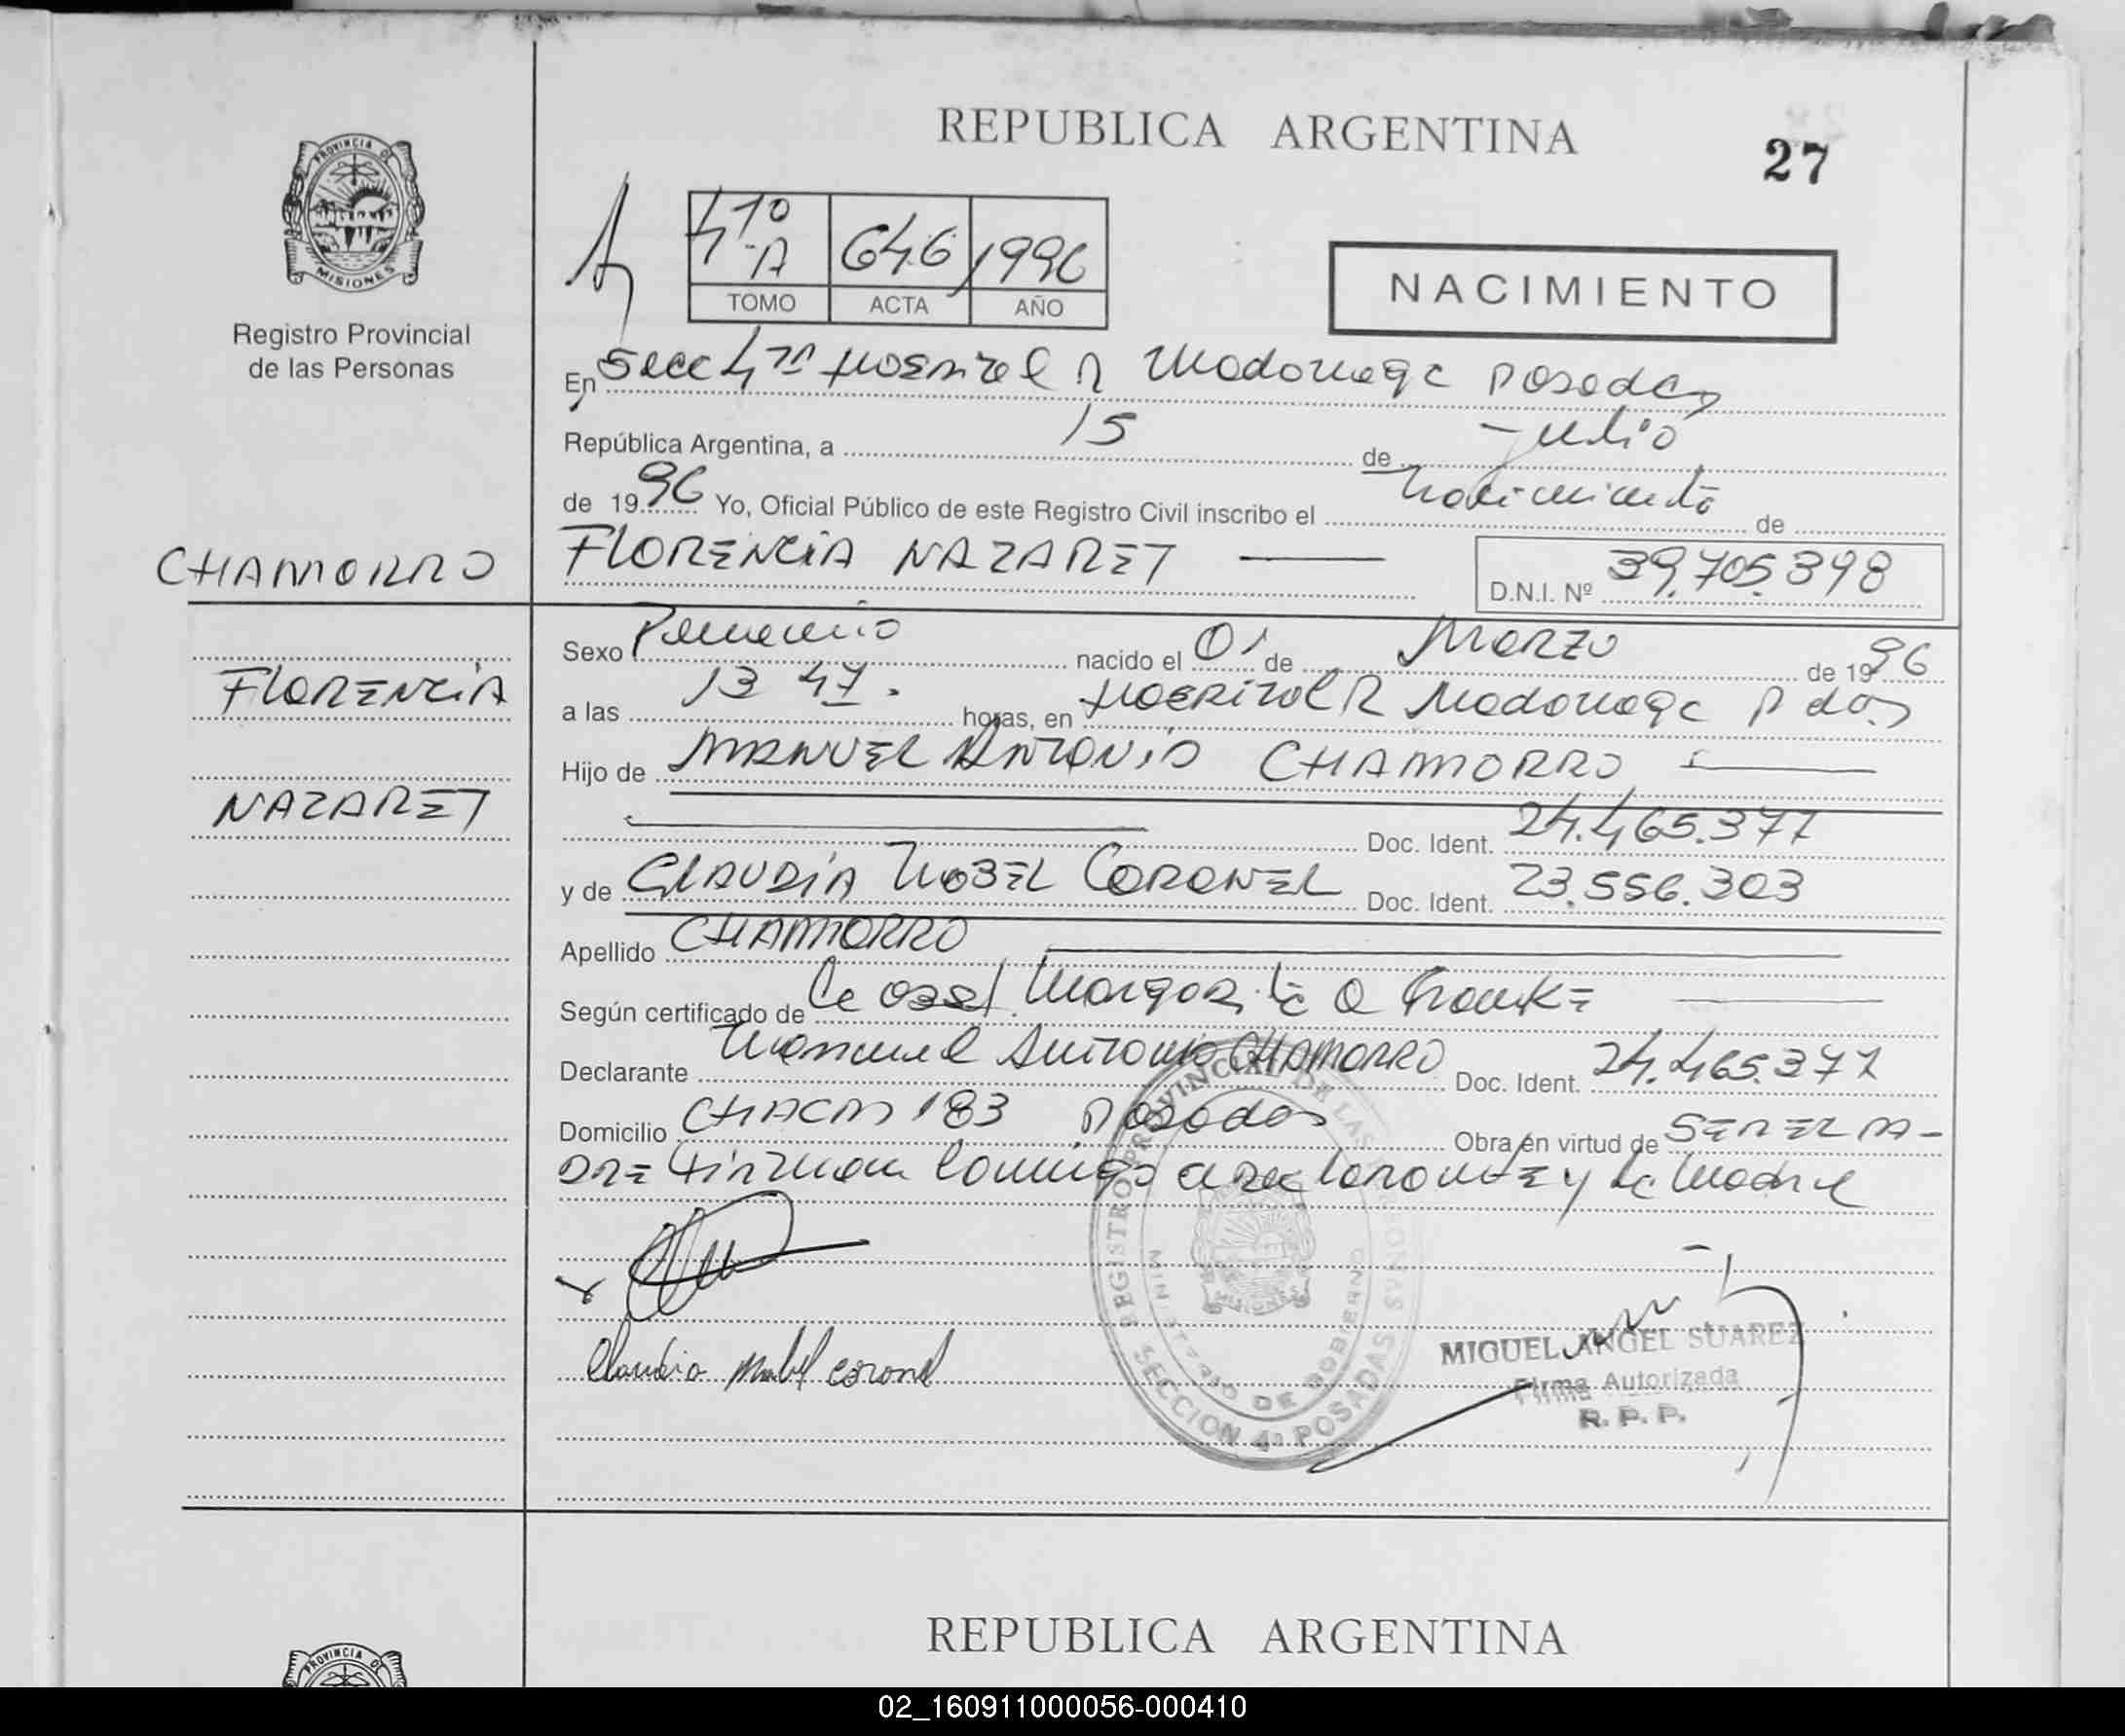 REPUBLICA ARGENTINA
27
PROVINCIA DE
MISIONES
Registro Provincial
de las Personas
47º
-A 646 1996
TOMO ACTA AÑO
NACIMIENTO
En Secc 4ª Hospital R Madariaga Posadas
República Argentina, a 15 de Julio
de 1996 Yo, Oficial Público de este Registro Civil inscribo el Nacimiento de
CHAMORRO
FLORENCIA NAZARET
D.N.I. Nº 39.705.398
FLORENCIA
NAZARET
Sexo Femenino nacido el 01 de Marzo de 1996
a las 13 47. horas, en Hospital R Madariaga Pdas
Hijo de MANUEL ANTONIO CHAMORRO
Doc. Ident. 24.465.377
y de CLAUDIA MABEL CORONEL Doc. Ident. 23.556.303
Apellido CHAMORRO
Según certificado de la obst. Margarita Q Franke
Declarante Manuel Antonio CHAMORRO Doc. Ident. 24.465.377
Domicilio CHACRA 183 Posadas Obra en virtud de SER EL PA-
DRE Firman conmigo el declarante y la Madre
Claudia Mabel Coronel
REGISTRO PROVINCIAL DE LAS PERSONAS
MINISTERIO DE GOBIERNO
MISIONES
SECCION 4ª POSADAS
MIGUEL ANGEL SUAREZ
Firma Autorizada
R. P. P.
REPUBLICA ARGENTINA
PROVINCIA DE
02_160911000056-000410